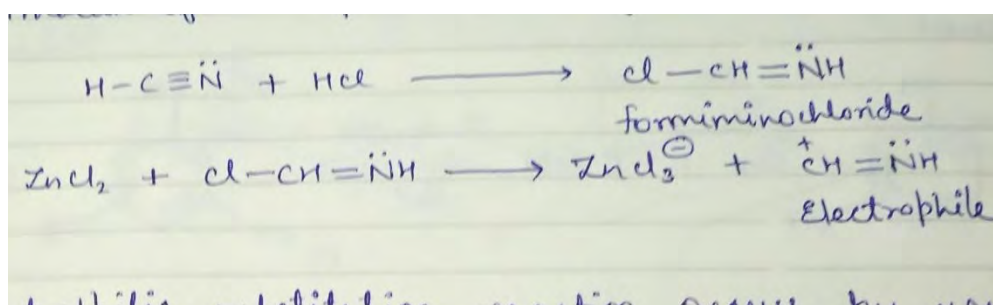 H-C≡N̈ + HCl ⟶ Cl-CH=N̈H
formiminochloride
ZnCl₂ + Cl-CH=N̈H ⟶ ZnCl₃⊖ + ⁺CH=N̈H
Electrophile